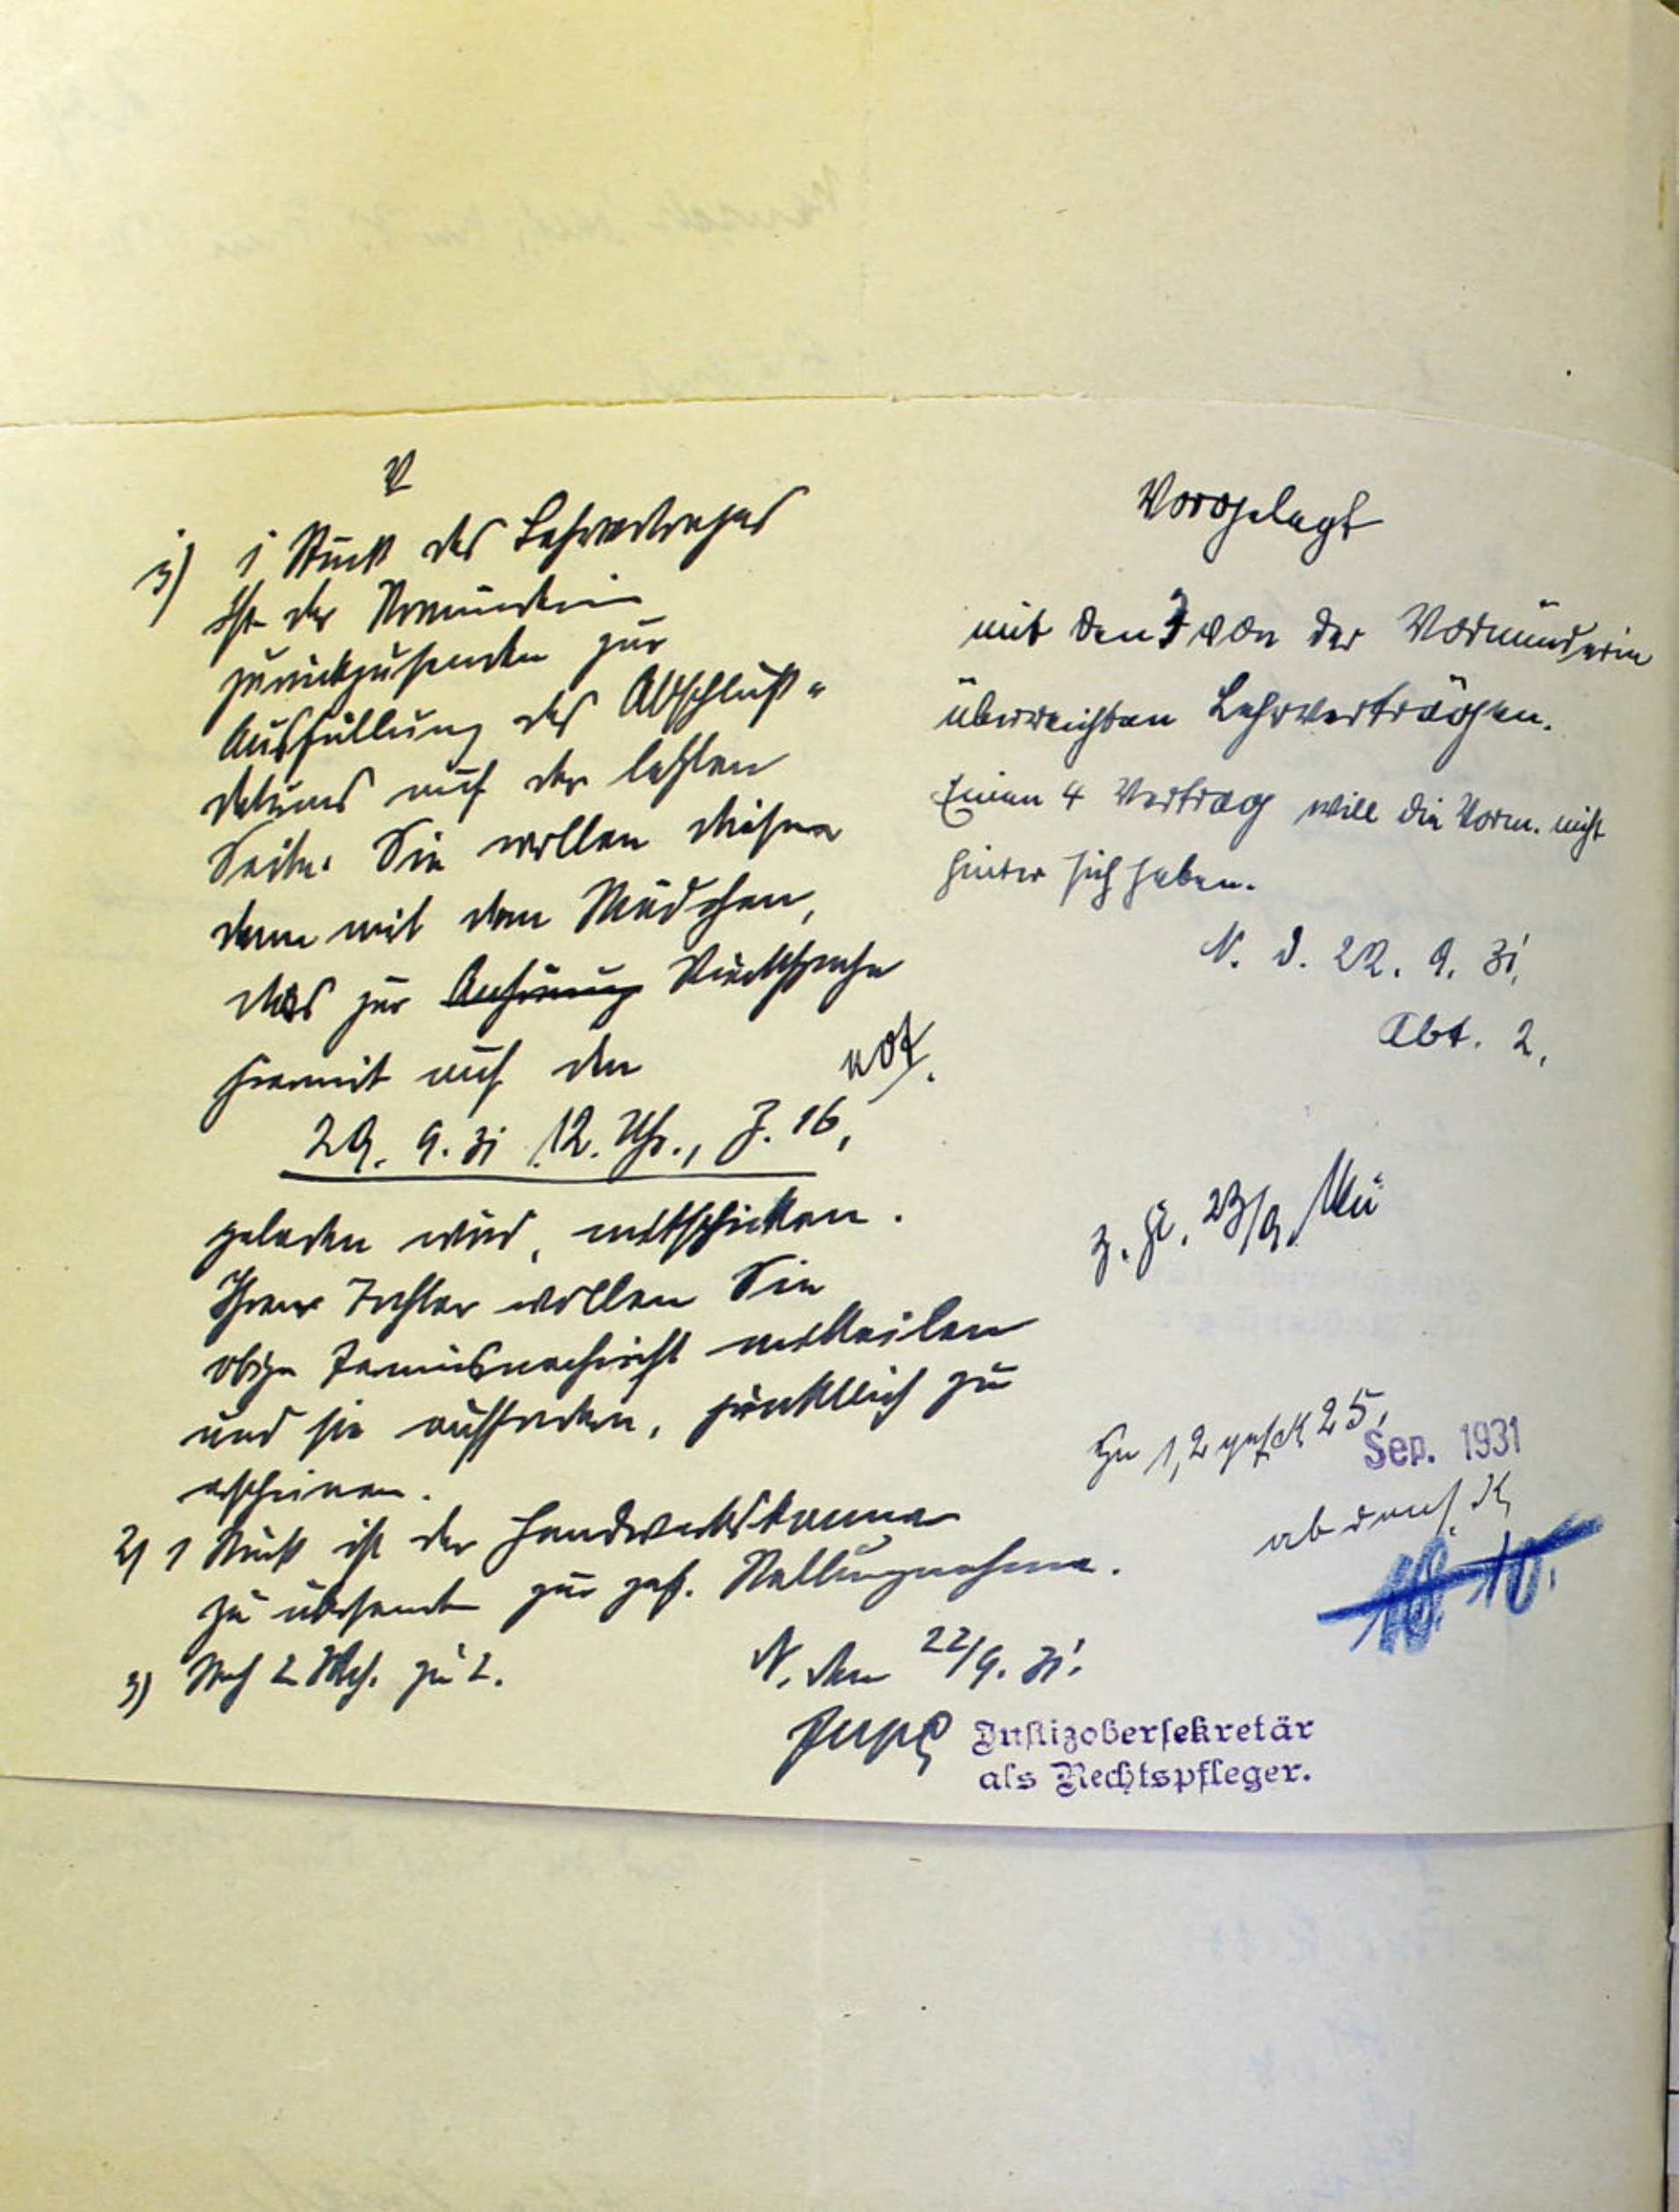 V
1) 1 Stück des Lehrvertrages
ist der Vormünderin
zurückzusenden zur
Ausfüllung des Abschluß-
datums auf der letzten
Seite. Sie wollen diesen
dann mit dem Mädchen,
das zur Anhörung Rücksprache
hiermit auf den
not.
29. 9. 31 12. Uhr., Z. 16,
geladen wird, mitschicken.
Ihrer Tochter wollen Sie
obige Terminsnachricht mitteilen
und sie auffordern, pünktlich zu
erscheinen.
2) 1 Stück ist der Handwerkskammer
zu übersenden zur gef. Stellungnahme.
3) Nach 2 Woch.
N. den 22/9. 31.
Justizobersekretär
als Rechtspfleger.
Vorgelegt
mit den 3 von der Vormünderin
überreichten Lehrverträgen.
Einen 4 Vertrag will die Vorm. nicht
hinter sich haben.
N. d. 22. 9. 31.
Abt. 2.
23/9. Mü
Zu 1, 2 gef. 25. Sep. 1931
ab durch
10. 10.